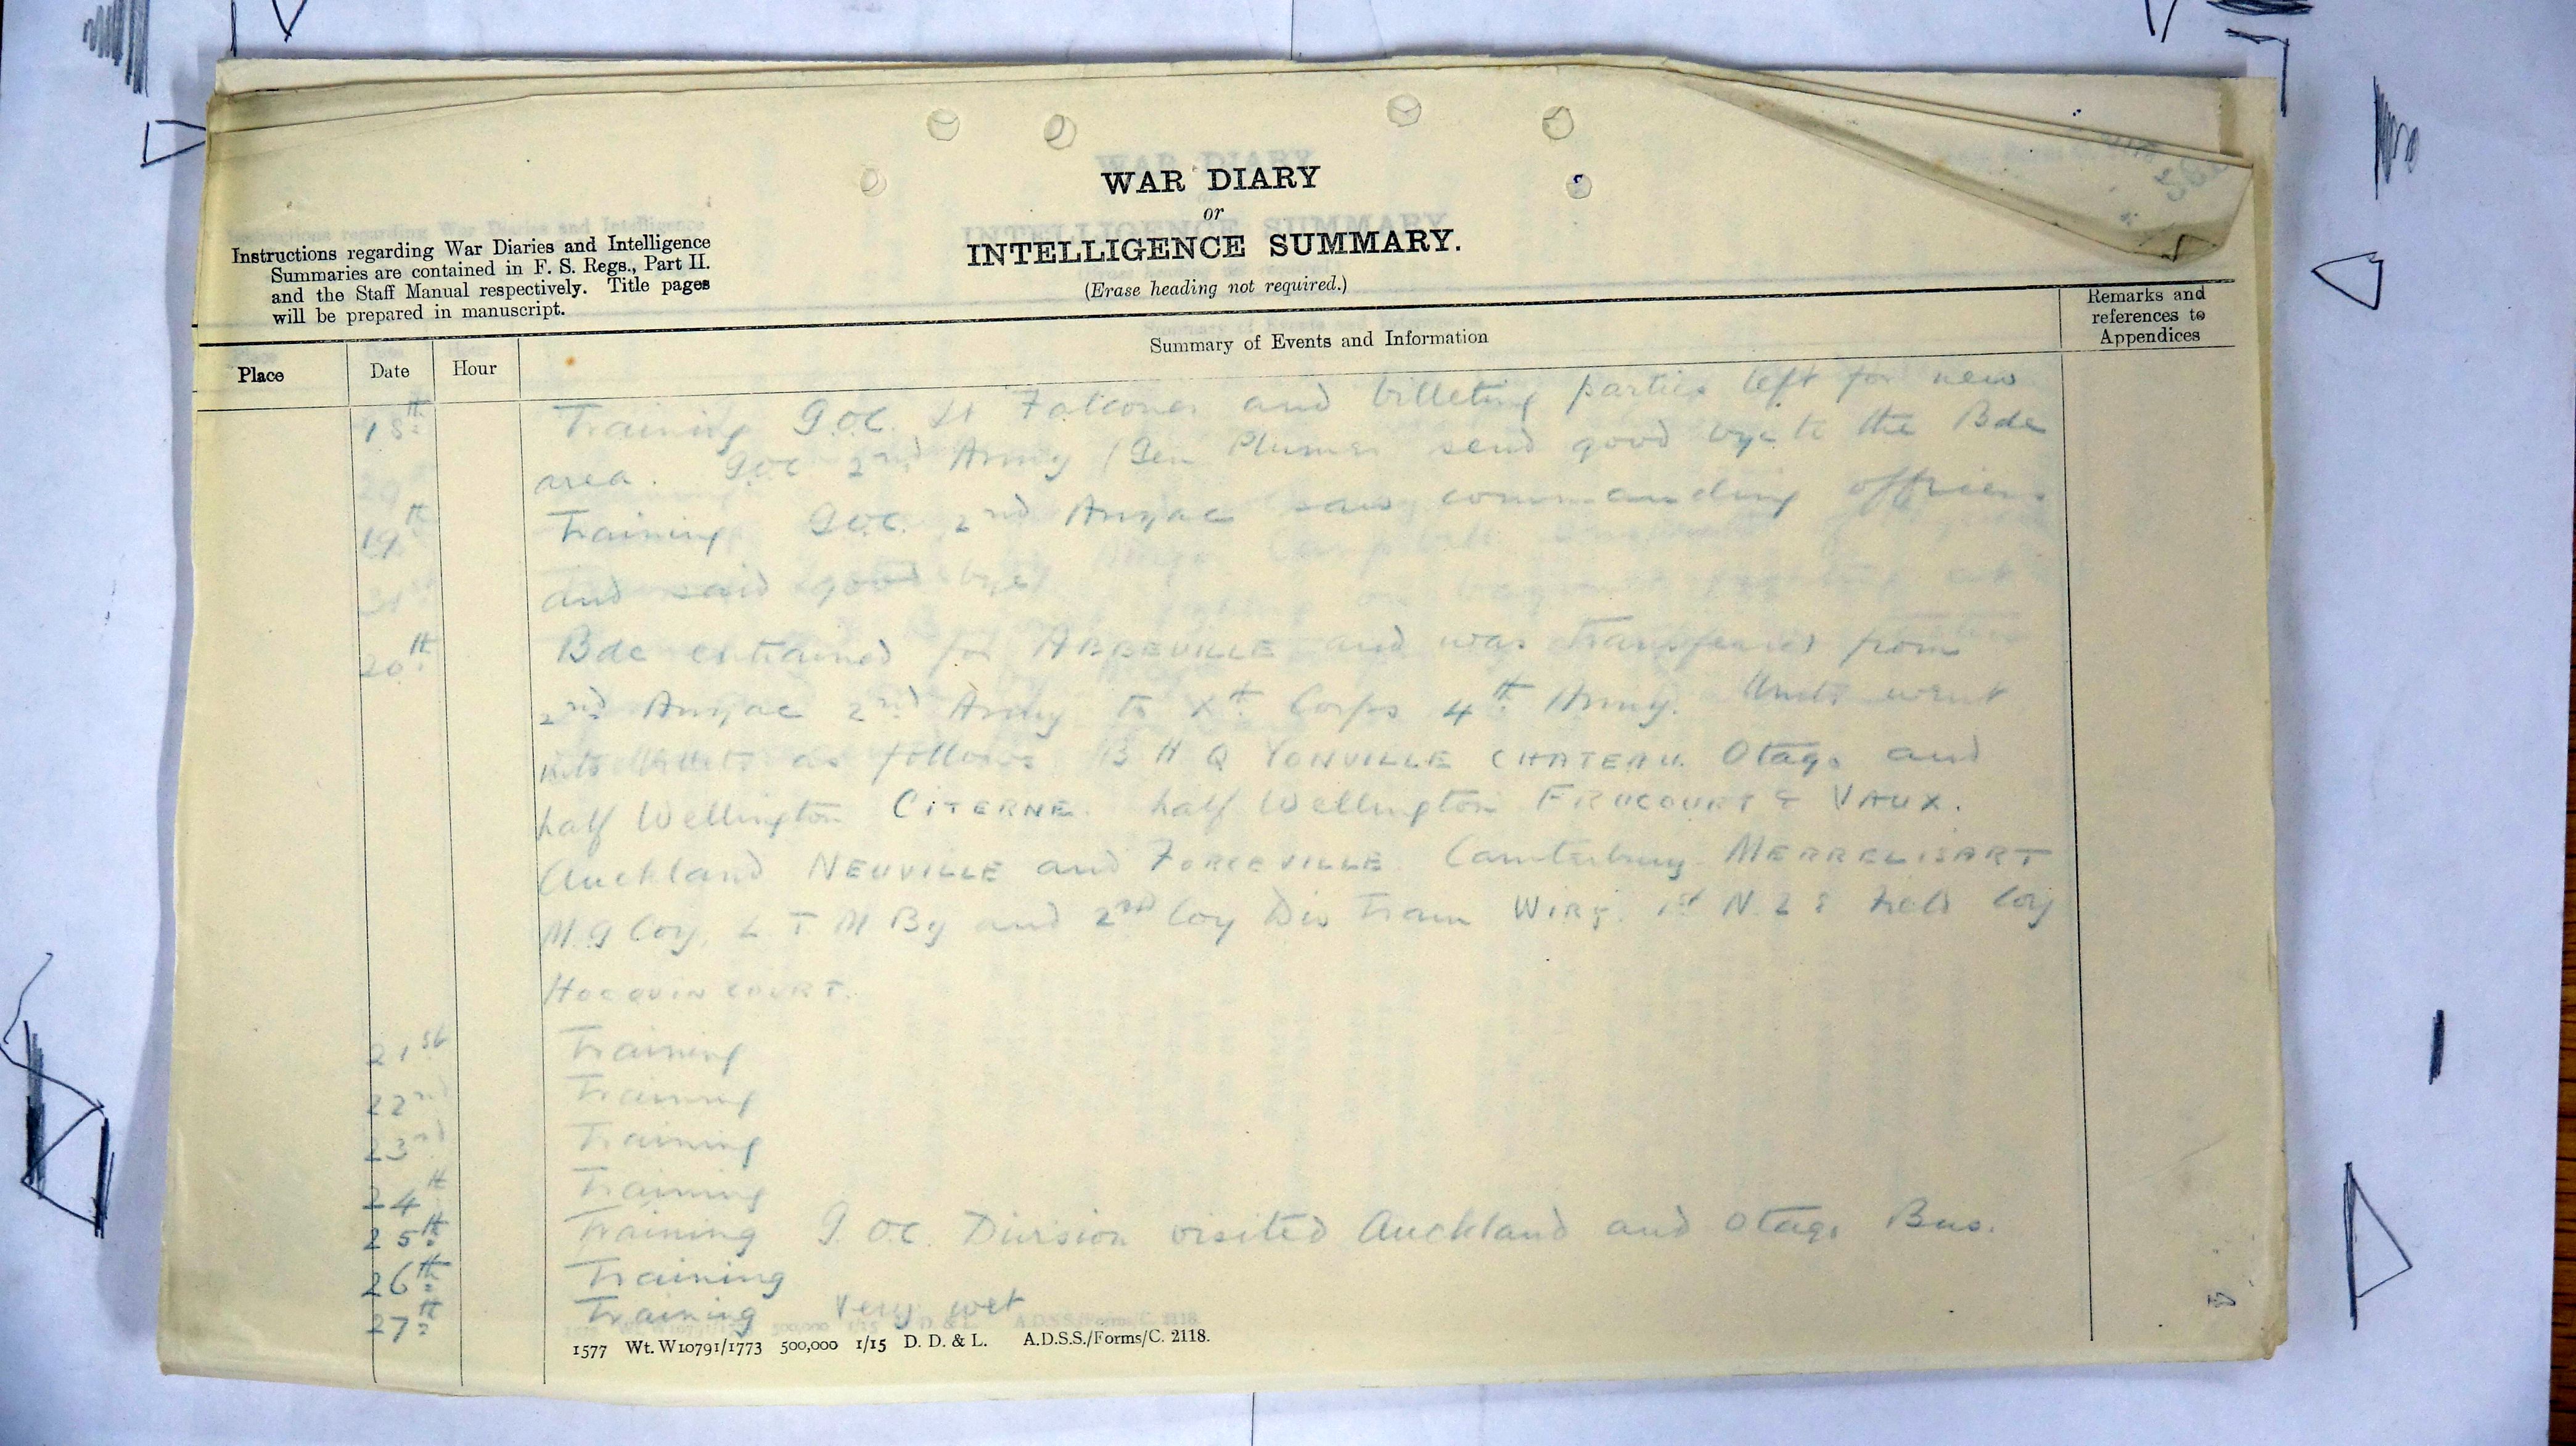 WAR DIARY
or
INTELLIGENCE SUMMARY.
(Erase heading not required.)
Instructions regarding War Diaries and Intelligence
Summaries are contained in F. S. Regs., Part II.
and the Staff Manual respectively. Title pages
will be prepared in manuscript.
Place Date Hour Summary of Events and Information Remarks and references to Appendices
18th Training G.O.C. Lt Falconer and billeting parties left for new
area. GOC 2nd Army (Gen Plumer send good bye to the Bde
19th Training G.O.C. 2nd Anzac saw commanding officers
and said good bye
20th Bde entrained for ABBEVILLE and was transferred from
2nd Anzac 2nd Army to Xth Corps 4th Army. Units went
into billets as follows B H Q YONVILLE CHATEAU. Otago and
half Wellington CITERNE. half Wellington FRUCOURT & VAUX.
Auckland NEUVILLE and FORCEVILLE Canterbury MERRELISART
M.G Coy, L T M By and 2nd Coy Div Train WIRY. 1st N.Z E Field Coy
HOCQUINCOURT.
21st Training
22nd Training
23rd Training
24th Training
25th Training G.O.C. Division visited Auckland and Otago Bns.
26th Training
27th Training Very wet
1577 Wt. W10791/1773 500,000 1/15 D. D. & L. A.D.S.S./Forms/C. 2118.